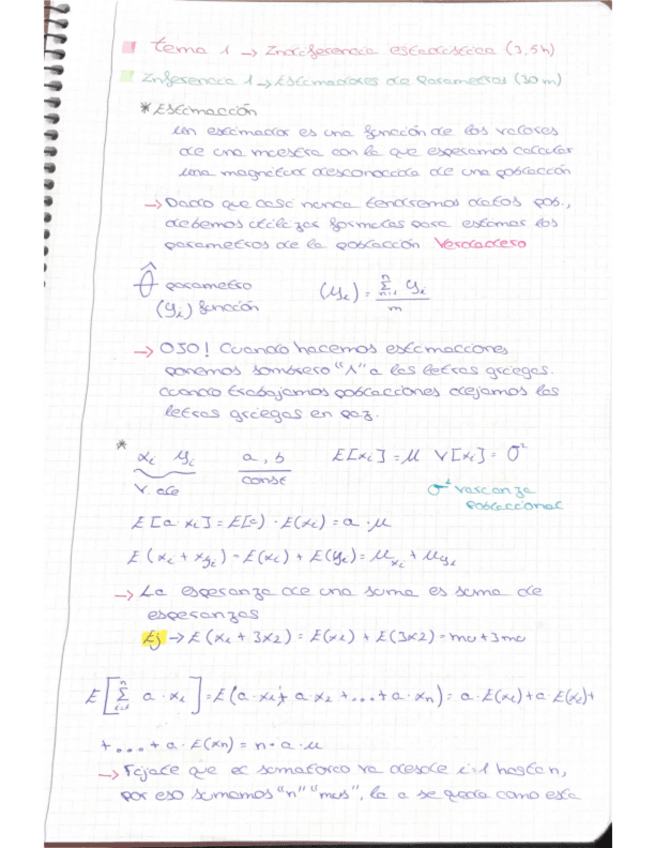 Tema 1 → Indiferencia estadística (3,5h)
Inferencia 1 → Estimadores de parametros (30m)
* Estimacción
un estimador es una función de los valores
de una muestra con la que esperamos calcular
una magnitud desconocida de una población
→ Dado que casi nunca tendremos datos pob.,
debemos utilizar formulas para estimar los
parametros de la población Verdadero
θ̂ parametro
(yi) función
(yi) = Σ yi / n
n
n=1
→ OJO! Cuando hacemos estimacciones
ponemos sombrero "Λ" a las letras griegas.
cuando trabajamos poblacciones dejamos las
letras griegas en paz.
* xi yi a, b E[xi] = μ V[xi] = σ²
V. ale const σ² varianza
poblaccional
E[a·xi] = E(a)·E(xi) = a·μ
E(xi + xyi) = E(xi) + E(yi) = μxi + μyi
→ La esperanza de una suma es suma de
esperanzas
Ej → E(x1 + 3x2) = E(x1) + E(3x2) = mu + 3mu
E[Σ a·xi] = E(a·x1 + a·x2 + ... + a·xn) = a·E(x1) + a·E(x2) +
n
i=1
+ ... + a·E(xn) = n·a·μ
→ Fíjate que el sumatorio va desde i=1 hasta n,
por eso sumamos "n" "mus", la a se queda como esta